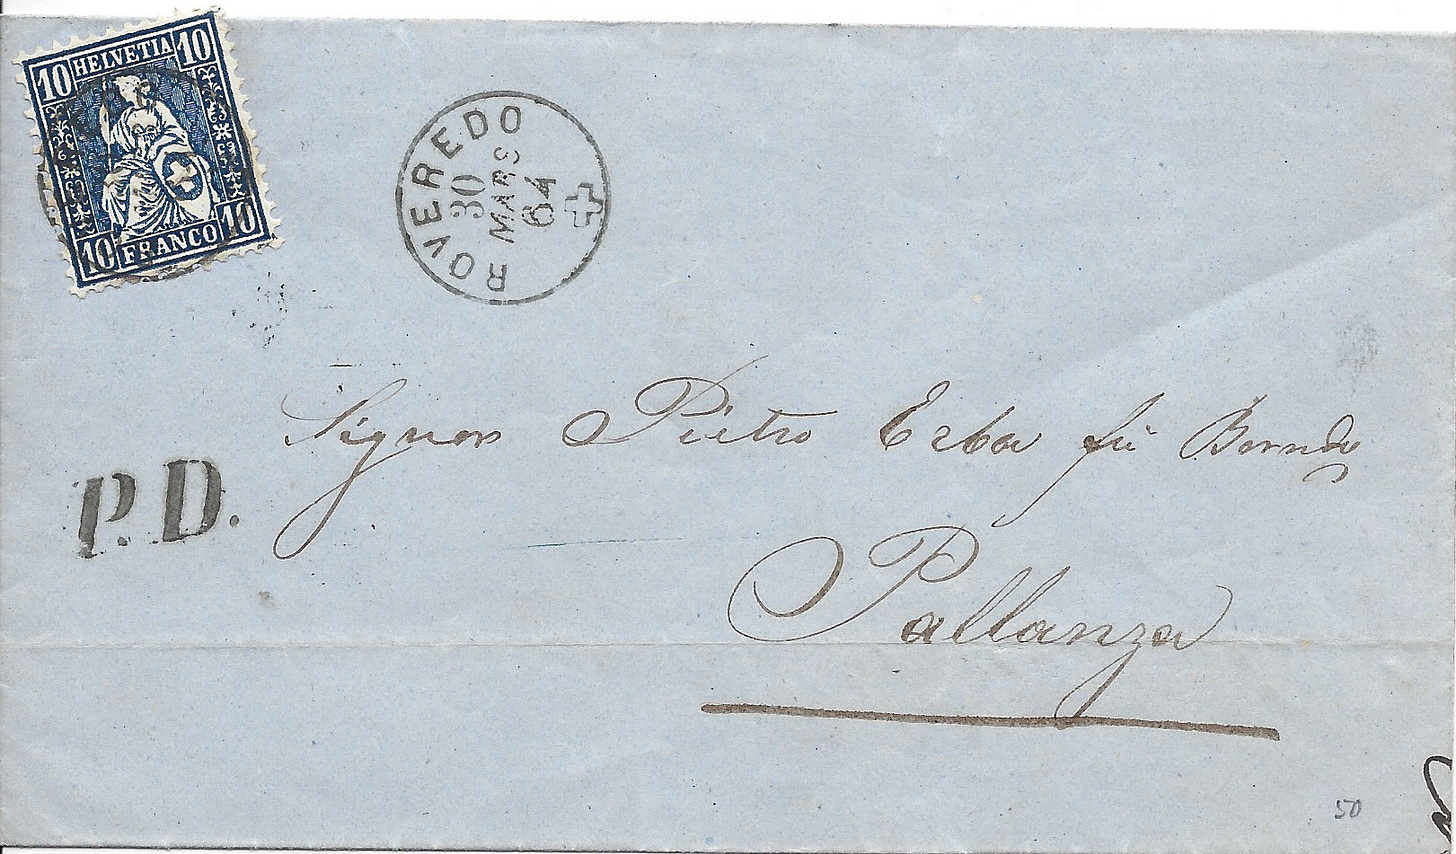 10 HELVETIA 10
10 FRANCO 10
ROVEREDO
30
MARS
64
Signor Pietro Erba fù Berndo
P.D.
Pallanza
50